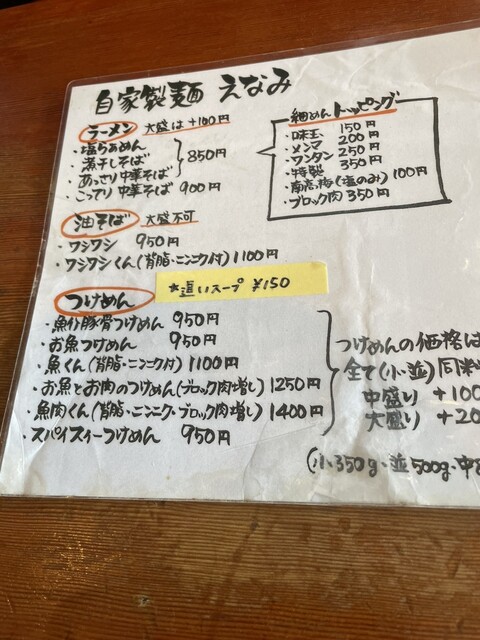 自家製麺 えなみ
ラーメン 大盛は+100円
・塩らぁめん
・煮干しそば
・あっさり中華そば
850円
・こってり中華そば 900円
油そば 大盛不可
・ワシワシ 950円
・ワシワシくん(背脂・ニンニク付) 1100円
★追いスープ ¥150
つけめん
・魚介豚骨つけめん 950円
・お魚つけめん 950円
・魚くん(背脂・ニンニク付) 1100円
・お魚とお肉のつけめん(ブロック肉増し) 1250円
・魚肉くん(背脂・ニンニク・ブロック肉増し) 1400円
・スパイスィーつけめん 950円
細めん トッピング
・味玉 150円
・メンマ 200円
・ワンタン 250円
・特製 350円
・南高梅(塩のみ) 100円
・ブロック肉 350円
つけめんの価格は
全て(小・並)同料
中盛り +100
大盛り +20
(小350g・並500g・中